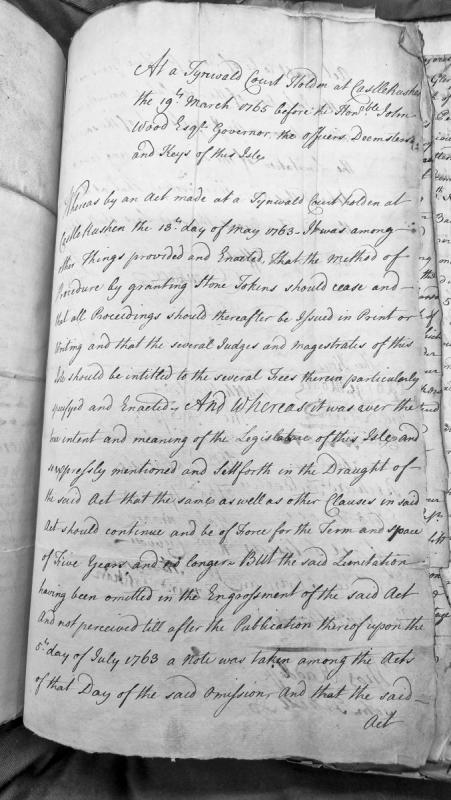 At a Tynwald Court Holden at CastleRushen
the 19th. March 1765 before the Honble. John
Wood Esqr. Governor, the officers Deemsters
and Keys of this Isle
Whereas by an Act made at a Tynwald Court holden at
CastleRushen the 18th. day of May 1763 – It was among
other Things provided and Enacted, That the method of
Procedure by granting Stone Tokens should cease and
that all Proceedings should thereafter be Issued in Print or
Writing and that the several Judges and magestrates of this
Isle should be intitled to the several Fees therein particularly
specifyd and Enacted – And Whereas it was ever the
true intent and meaning of the Legislature of this Isle and
so expressly mentioned and Settforth in the Draught of
the said Act that the same as well as other Clauses in said
Act should continue and be of Force for the Term and space
of Five Years and no longer – But the said Limitation
having been omitted in the Engrossment of the said Act
And not perceived till after the Publication thereof upon the
5th. day of July 1763 a Note was taken among the Acts
of that Day of the said Omission, And that the said
Act